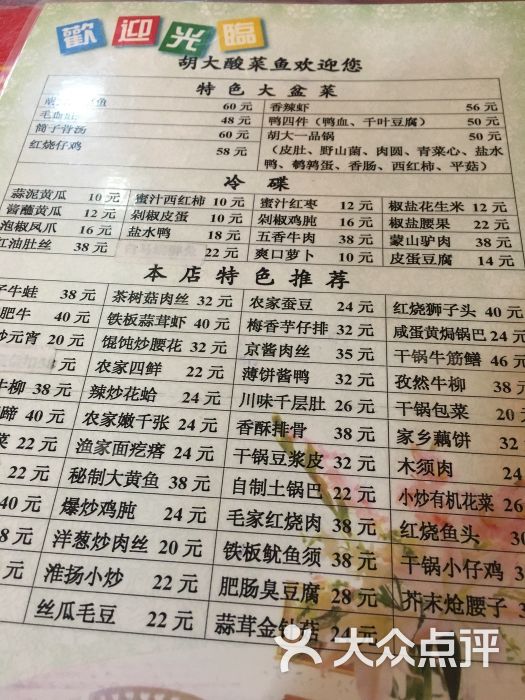 歡迎光臨
胡大酸菜鱼欢迎您
特色大盆菜
鱼 60元 香辣虾 56元
毛血旺 48元 鸭四件（鸭血、千叶豆腐） 50元
筒子骨汤 60元 胡大一品锅 50元
红烧仔鸡 58元 （皮肚、野山菌、肉圆、青菜心、盐水
鸭、鹌鹑蛋、香肠、西红柿、平菇）
冷碟
蒜泥黄瓜 10元 蜜汁西红柿 10元 蜜汁红枣 12元 椒盐花生米 12元
酱蘸黄瓜 12元 剁椒皮蛋 10元 剁椒鸡肫 16元 椒盐腰果 22元
泡椒凤爪 16元 盐水鸭 18元 五香牛肉 38元 蒙山驴肉 38元
红油肚丝 38元 22元 爽口萝卜 10元 皮蛋豆腐 14元
本店特色推荐
牛蛙 38元 茶树菇肉丝 32元 农家蚕豆 24元 红烧狮子头 40元
肥牛 40元 铁板蒜茸虾 40元 梅香芋仔排 32元 咸蛋黄焗锅巴 24元
炒元宵 20元 馄饨炒腰花 32元 京酱肉丝 35元 干锅牛筋鳝 46元
8元 农家四鲜 22元 薄饼酱鸭 32元 孜然牛柳 38元
牛柳 38元 辣炒花蛤 24元 川味千层肚 26元 干锅包菜 20元
蹄 40元 农家嫩千张 24元 香酥排骨 38元 家乡藕饼 32元
菜 22元 渔家面疙瘩 24元 干锅豆浆皮 32元 木须肉 24
22元 秘制大黄鱼 38元 自制土锅巴 22元 小炒有机花菜 26
40元 爆炒鸡肫 24元 毛家红烧肉 38元 红烧鱼头 30
8元 洋葱炒肉丝 20元 铁板鱿鱼须 38元 干锅小仔鸡
元 淮扬小炒 22元 肥肠臭豆腐 28元 芥末炝腰子
丝瓜毛豆 22元 蒜茸金针菇 24元
大众点评